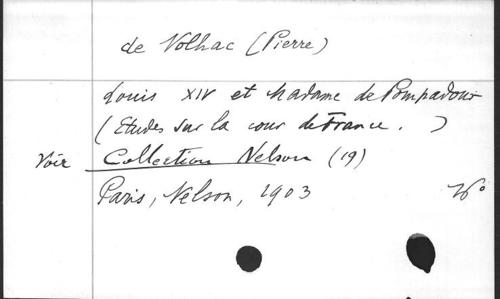 de Nolhac (Pierre)
Louis XIV et Madame de Pompadour
(Etudes sur la cour de France.)
Voir Collection Nelson (19)
Paris, Nelson, 1903